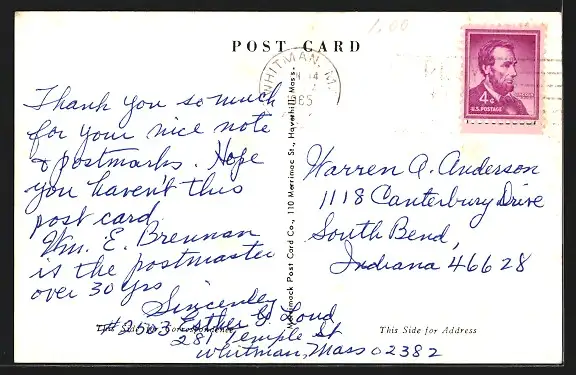 1.00
POST CARD
WHITMAN, M
14
1965
4¢
U.S. POSTAGE
Thank you so much
for your nice note
& postmarks. Hope
you haven't this
post card.
Wm. E. Brennan
is the postmaster
over 30 yrs
Sincerely
#2503 Esther G. Loud
281 Temple St
Whitman, Mass 02382
Merrimack Post Card Co., 110 Merrimac St., Haverhill, Mass.
Warren A. Anderson
1118 Canterbury Drive
South Bend,
Indiana 46628
This Side for Correspondence
This Side for Address